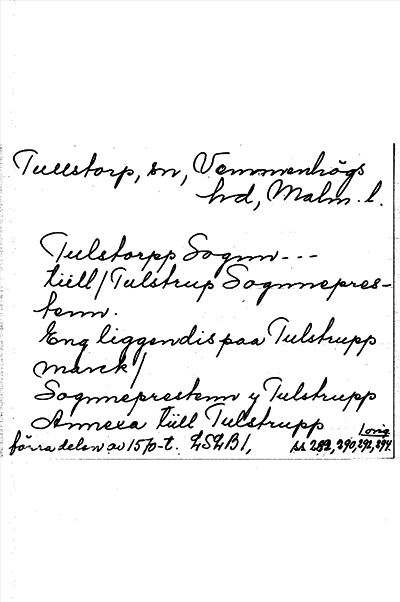 Tullstorp, sn, Vemmenhögs
hd, Malm. l.
Tulstorpp Sognn---
tiill/Tulstrup Sognnepres-
tenn.
Eng liggendis paa Tulstrupp
marck/
Sognneprestenn y Tulstrupp
Annexa tiill Tulstrupp
1 orig
förra delen av 1570-t. LSLB1, ss 282, 290, 292, 294.